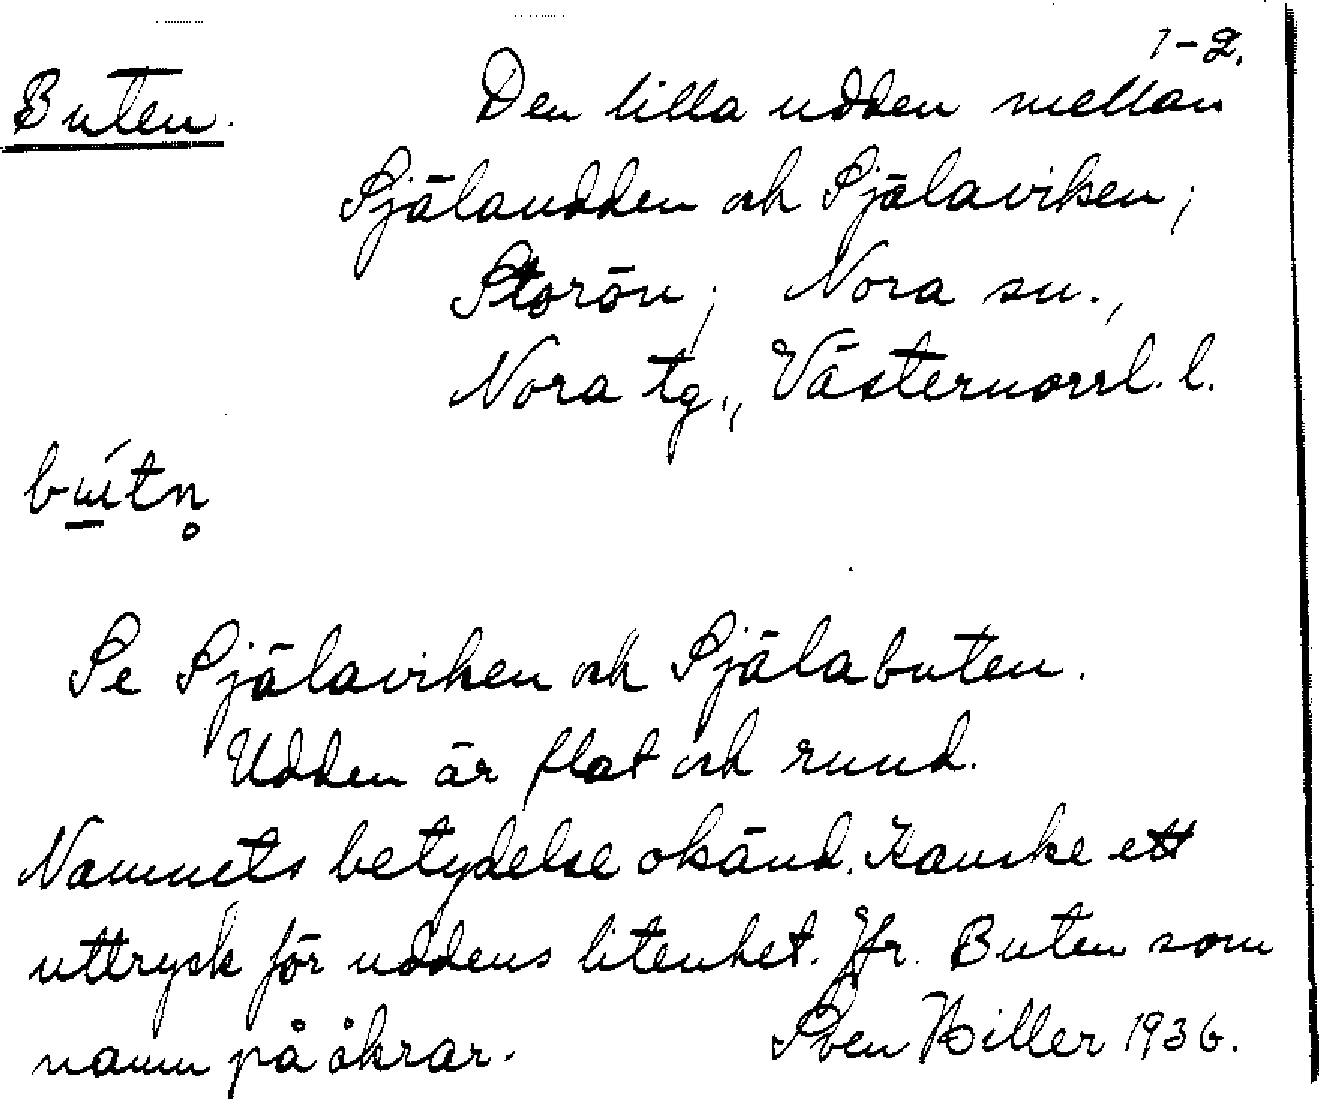 1-2.
Buten. Den lilla udden mellan
Själaudden och Själaviken;
Storön; Nora sn.,
Nora tg., Västernorrl. l.
Se Själaviken och Själabuten.
Udden är flat och rund.
Namnets betydelse okänd. Kanske ett
uttryck för uddens litenhet. Jfr. Buten som
namn på åkrar. Sven Hiller 1936.